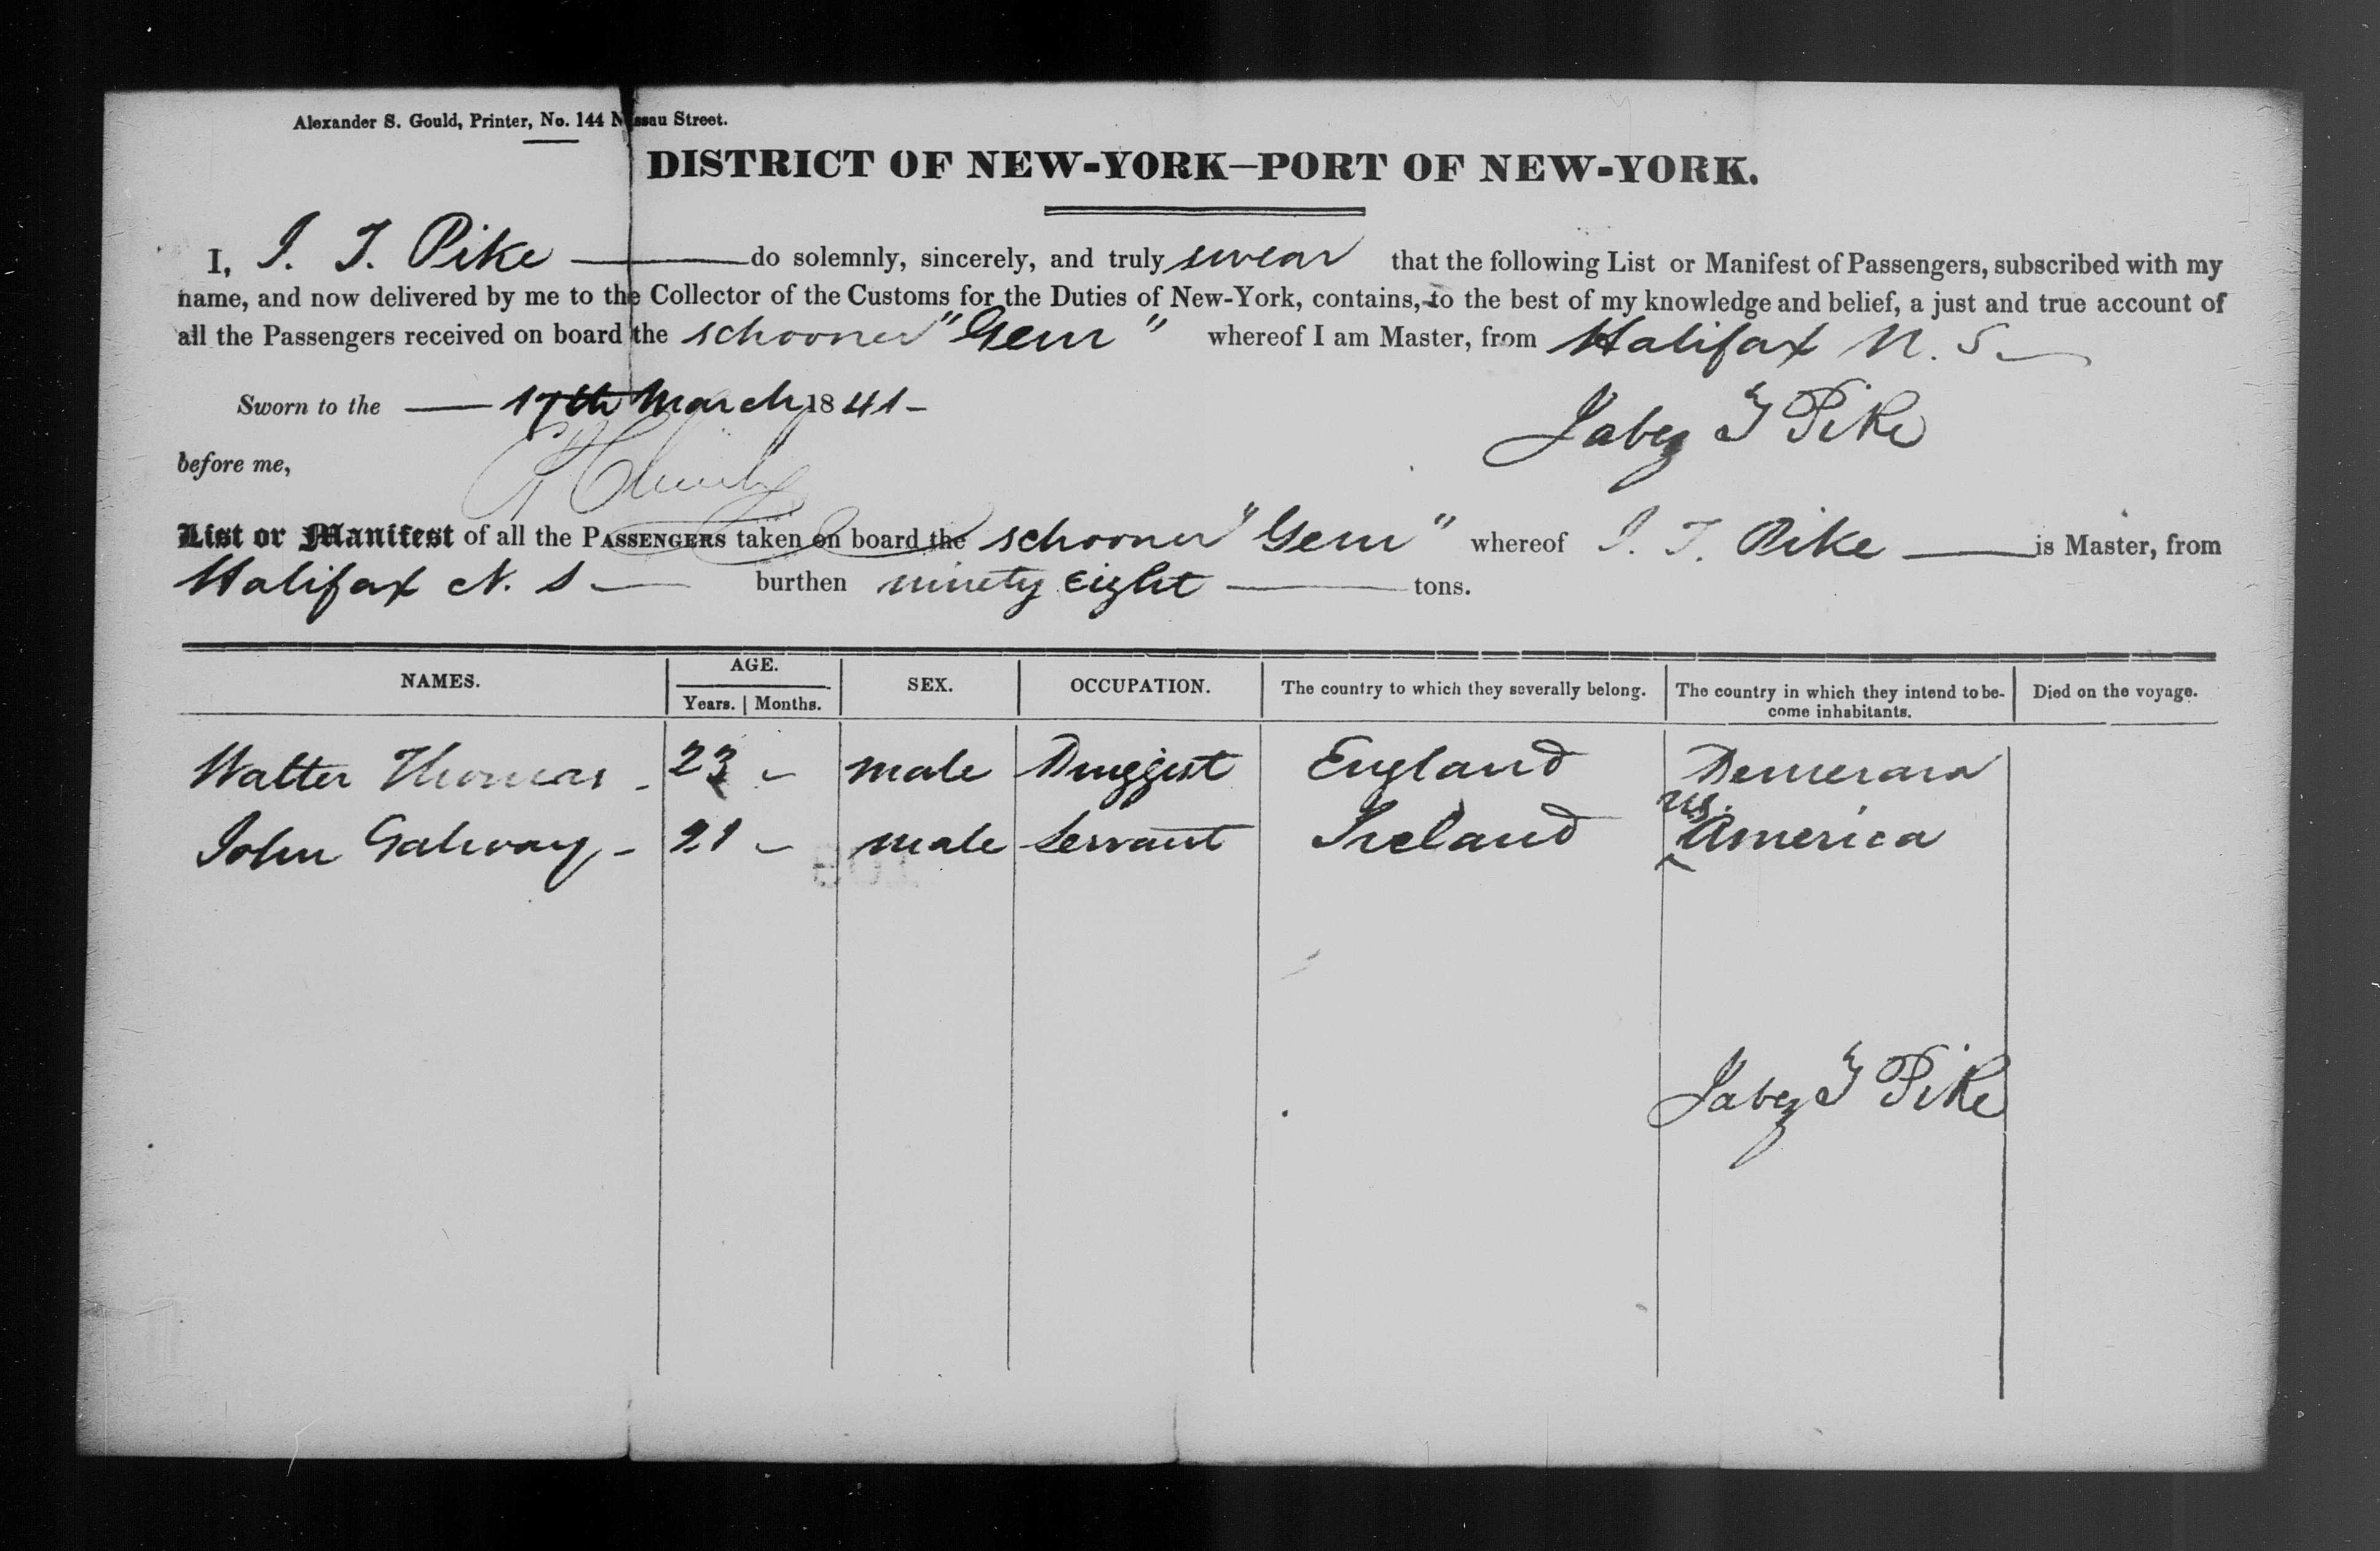 Alexander S. Gould, Printer, No. 144 Nassau Street.
DISTRICT OF NEW-YORK—PORT OF NEW-YORK.
I, J. T. Pike do solemnly, sincerely, and truly swear that the following List or Manifest of Passengers, subscribed with my
name, and now delivered by me to the Collector of the Customs for the Duties of New-York, contains, to the best of my knowledge and belief, a just and true account of
all the Passengers received on board the schooner "Gem" whereof I am Master, from Halifax N. S.
Sworn to the 17th March 1841-
Jabez T Pike
before me,
List or Manifest of all the PASSENGERS taken on board the schooner "Gem" whereof J. T. Pike is Master, from
Halifax N. S burthen ninety Eight tons.
NAMES. AGE. Years. Months. SEX. OCCUPATION. The country to which they severally belong. The country in which they intend to become inhabitants. Died on the voyage.
Walter Thomas - 23 - male Druggist England Demerara
John Galway - 21 - male Servant Ireland US. America
Jabez T Pike